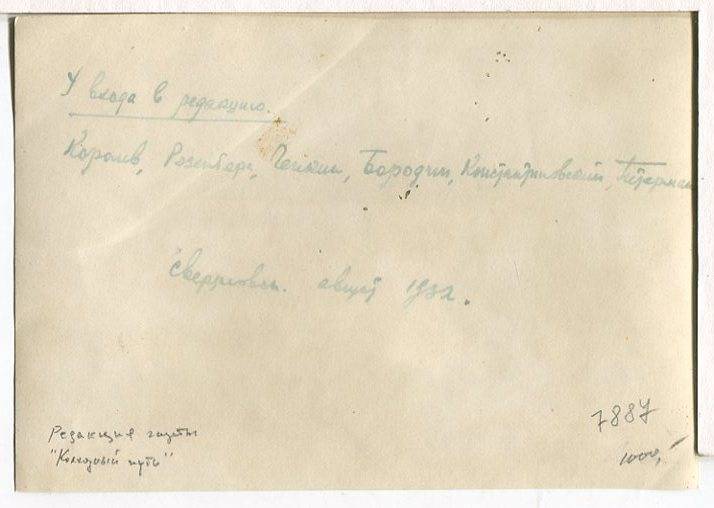 У входа в редакцию.
Королев, Розенберг, Чечкин, Бородин, Константиновский, Петерман
Свердловск. август 1932.
7887
1000,-
Редакция газеты
"Колхозный путь"